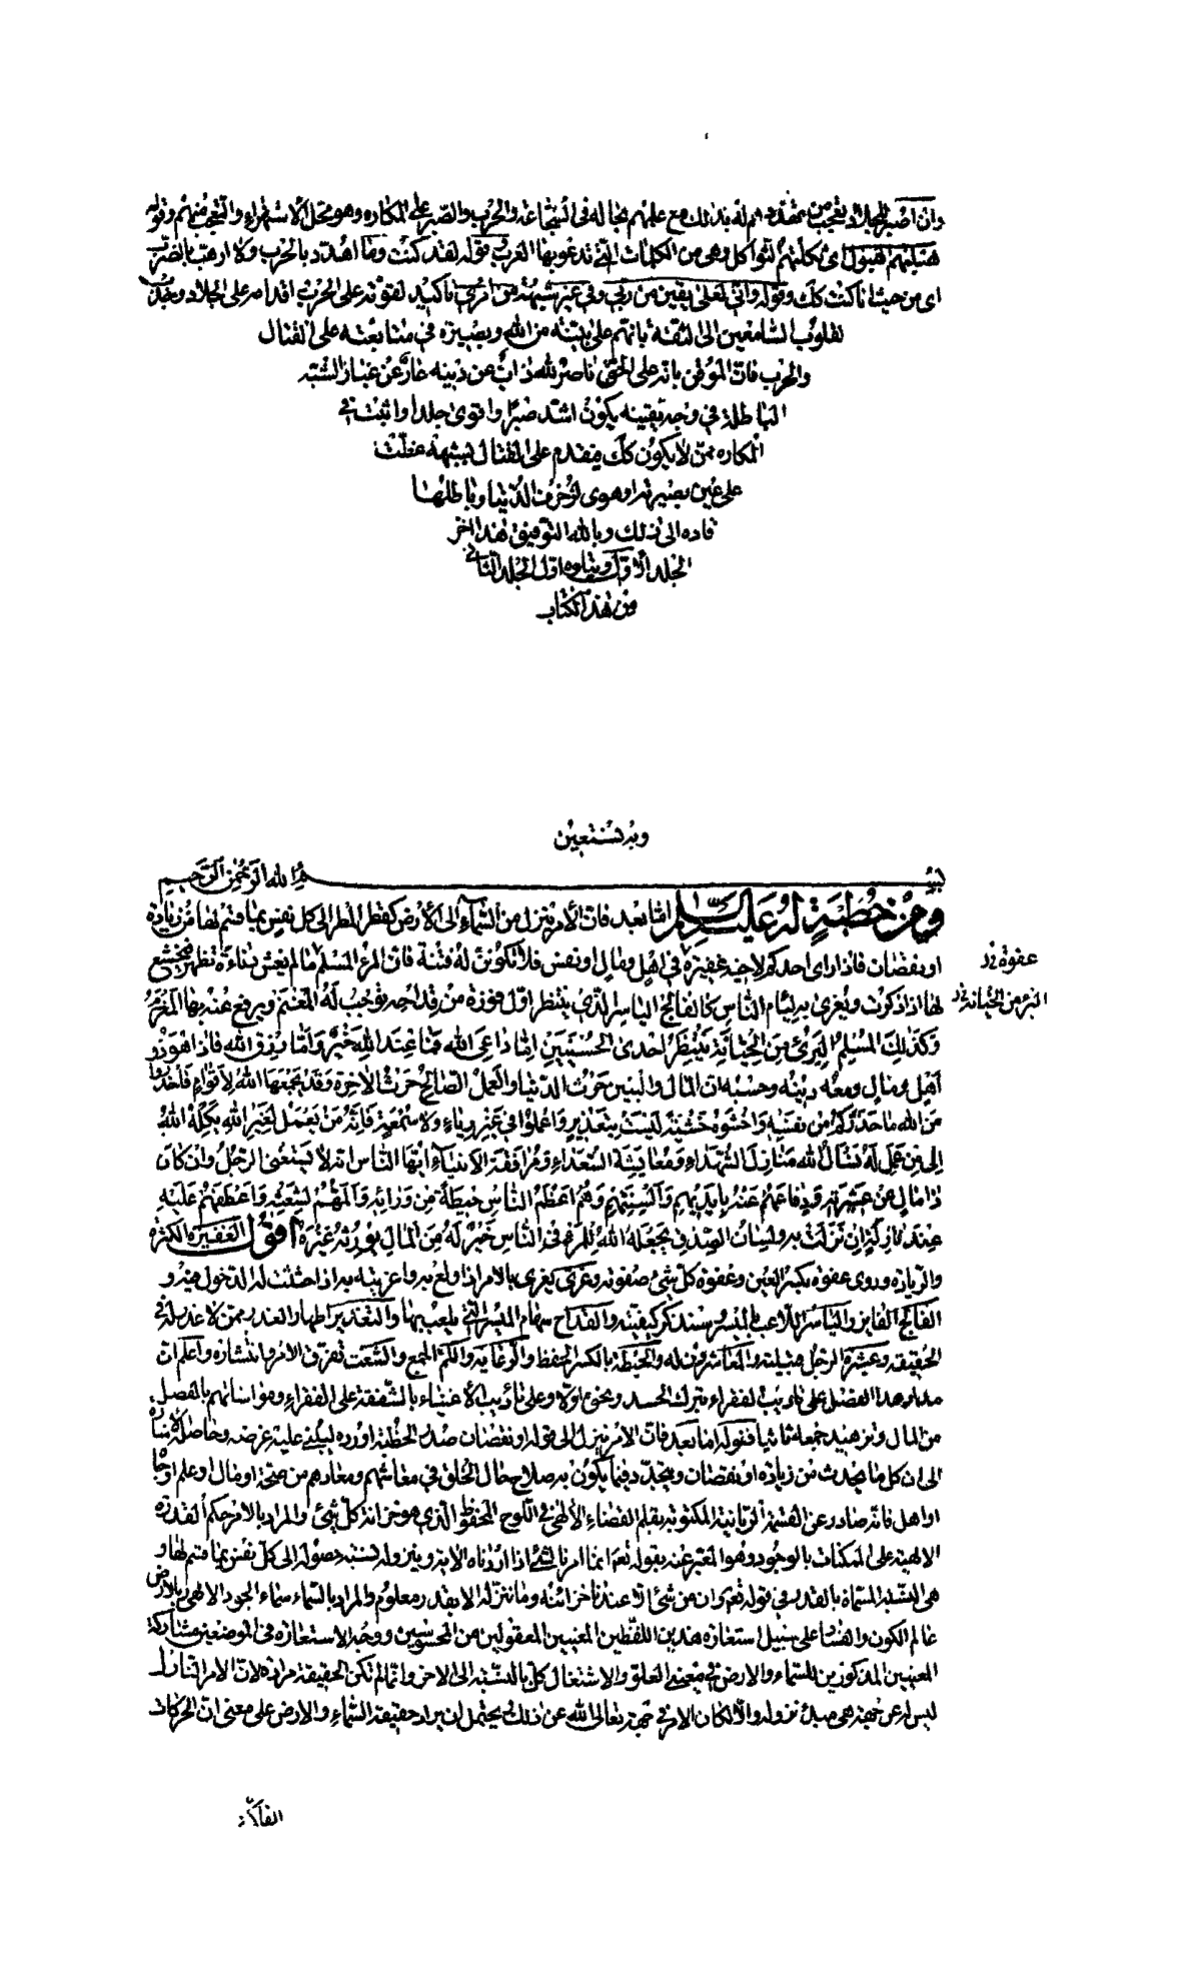 وان اصبر للجلاد تعجب من تهددهم له بذلك مع علمهم بحاله في الشجاعة والحرب والصبر على المكاره وهو محل الاستهزاء والتعجب منهم وقوله
هبلتهم الهبول اي ثكلتهم الثواكل وهي من الكلمات التي تدعو بها العرب قوله لقد كنت وما اهدد بالحرب ولا ارهب بالضرب
اي من حيث انا كنت كك وقوله واني لعلى يقين من ربي وفي غير شبهة من امري تاكيد لقوته على الحرب اقدامه على الجلاد وجذب
لقلوب السامعين الى الثقة بانهم على بينة من الله وبصيرة في متابعته على القتال
والحرب فان الموقن بانه على الحق ناصر لله ذاب عن دينه عار عن غبار الشبه
الباطلة في وجه يقينه يكون اشد صبرا واقوى جلدا واثبت في
المكاره ممن لا يكون كك فيقدم على القتال لشبهة عظلت
على عين بصيرته او هوى لزخرف الدنيا وباطلها
قاده الى ذلك وبالله التوفيق هذا اخر
الجلد الاول ويتلوه اول الجلد الثاني
من هذا الكتاب
وبه نستعين
بسم الله الرحمن الرحيم
ومن خطبة له عليه السلام اما بعد فان الامر ينزل من السماء الى الارض كقطر المطر الى كل نفس بما قسم لها من زيادة
او نقصان فاذا راى احدكم لاخيه غفيرة في اهل او مال او نفس فلا تكونن له فتنة فان المرء المسلم ما لم يغش دناءة تظهر فيخشع
عفوة خ
لها اذا ذكرت ويغرى به لئام الناس كالفالج الياسر الذي ينتظر اول فوزة من قداحه توجب له المغنم ويرفع عنه بها المغرم
البرء من الخيانة خ
وكذلك المسلم البرئ من الخيانة ينتظر احدى الحسنيين اما داعي الله فما عند الله خير له واما رزق الله فاذا هو ذو
اهل ومال ومعه دينه وحسبه ان المال والبنين حرث الدنيا والعمل الصالح حرث الاخرة وقد يجمعها الله لاقوام فاحذروا
من الله ما حذركم من نفسه واخشوه خشية ليست بتعذير واعملوا في غير رياء ولا سمعة فانه من يعمل لغير الله يكله الله
الى من عمل له نسأل الله منازل الشهداء ومعايشة السعداء ومرافقة الانبياء ايها الناس انه لا يستغني الرجل وان كان
ذا مال عن عشيرته ودفاعهم عنه بايديهم والسنتهم وهم اعظم الناس حيطة من ورائه والمهم لشعثه واعطفهم عليه
عند نازلة ان نزلت به ولسان الصدق يجعله الله للمرء في الناس خير له من المال يورثه غيره اقول الغفيرة الكثرة
والزيادة وروى عفوة بكسر العين وعفوة كل شئ صفوته وغرى يغرى بالامر اذا ولع به واغريته به اذا حثثت له الدخول فيه و
الفالج الفايز والياسر اللاعب بالميسر وسنذكر كيفيته والقداح سهام الميسر التي يلعب بها والتعذير اظهار العذر ممن لا عذر له في
الحقيقة وعشيرة الرجل قبيلته والمعاشرون له والحيطة بالكسر الحفظ والرعاية واللم الجمع والشعث تفرق الامر وانتشاره واعلم ان
مدار هذا الفصل على تاديب الفقراء بترك الحسد ونحوه اولا وعلى تاديب الاغنياء بالشفقة على الفقراء ومواساتهم بالفضل
من المال وتزهيد جمعه ثانيا فقوله اما بعد فان الامر ينزل الى قوله او نقصان صدر الخطبة اورده ليبني عليه غرضه وحاصله الاشارة
الى ان كل ما يحدث من زيادة او نقصان ويتجدد فيما يكون به صلاح حال الخلق في معاشهم ومعادهم من صحة او مال او علم او جاه
او اهل فانه صادر عن القسمة الربانية المكتوبة بقلم القضاء الالهي في اللوح المحفوظ الذي هو خزانة كل شئ والمراد بالامر حكم القدرة
الالهية على الممكنات بالوجود وهو المعبر عنه بقوله تعم انما امرنا لشئ اذا اردناه الاية وبنزوله نسبة حصوله الى كل نفس بما قسم لها و
هي القسمة المسماة بالقدر في قوله تعم وان من شئ الا عندنا خزائنه وما ننزله الا بقدر معلوم والمراد بالسماء سماء الجود الالهي وبالارض
عالم الكون والفساد على سبيل استعارة هذين اللفظين المعنيين المعقولين من المحسوسين ووجه الاستعارة في الموضعين مشاركة
المعنيين المذكورين للسماء والارض في معنى العلو والاشتغال كل بالنسبة الى الاخر وانما لم تكن الحقيقة مرادة لان الامر النازل
ليس له عن جهة هي مبدء نزوله والا لكان الامر في جهة تعالى الله عن ذلك يحتمل ان يراد حقيقة السماء والارض على معنى ان الحركات
الفلكية